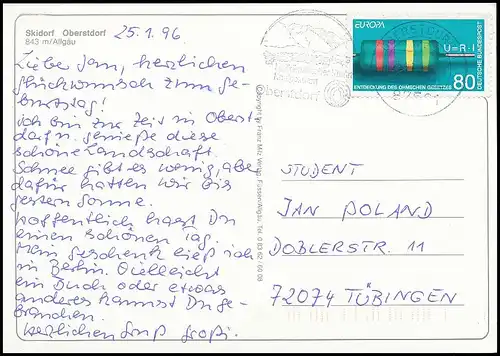 Skidorf Oberstdorf
843 m/Allgäu
25.1.96
Liebe Jan, herzlichen
Glückwunsch zum Ge-
burtstag!
Ich bin zur Zeit in Oberst-
dorf u. genieße diese
schöne Landschaft.
Schnee gibt es wenig, aber
dafür hatten wir bis
gestern Sonne.
Hoffentlich hast Du
einen schönen Tag.
Mein Geschenk ließ ich
in Berlin. Vielleicht
ein Buch oder etwas
anderes kannst Du ge-
brauchen.
Herzlichen Gruß
Copyright by Franz Milz Verlag, Füssen/Allgäu, Tel. 0 83 62 / 60 09
Oberstdorf
EUROPA
U=R·I
DEUTSCHE BUNDESPOST
ENTDECKUNG DES OHMSCHEN GESETZES
80
STUDENT
JAN POLAND
DOBLERSTR. 11
72074 TÜBINGEN